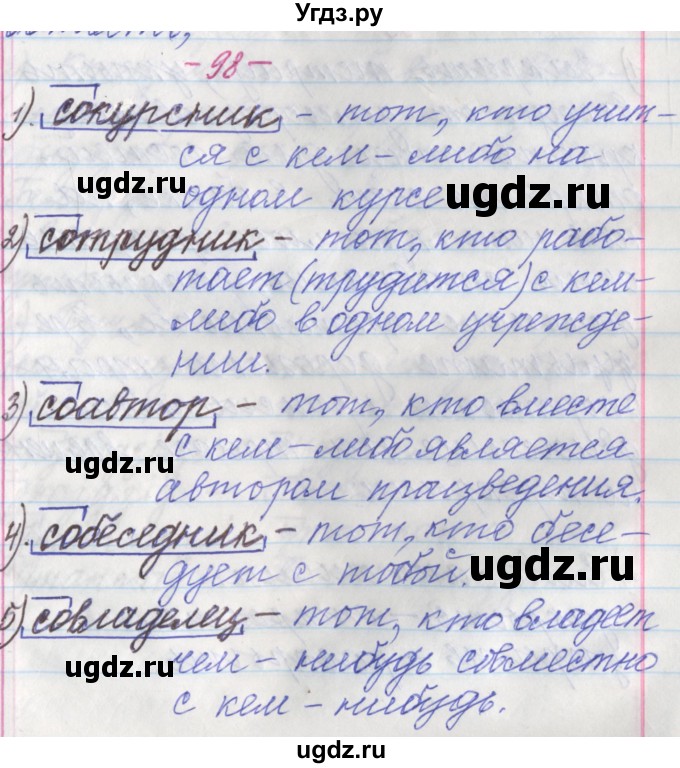 Угдз.ру
- 98 -
1). сокурсник - тот, кто учит-
ся с кем-либо на
ugdz.ru
одном курсе
ugdz.ru
2) сотрудник - тот, кто рабо-
тает (трудится) с кем-
либо в одном учрежде-
нии.
3) соавтор - тот, кто вместе
с кем-либо является
ugdz.ru
автором произведения.
4). собеседник - тот, кто бесе-
дует с тобой.
ugdz.ru
5) совладелец - тот, кто владеет
чем-нибудь совместно
ugdz.ru
с кем-нибудь.
ugdz.ru